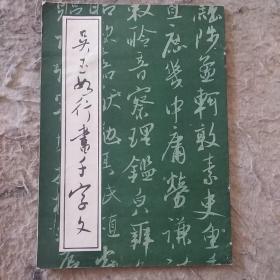 吳玉如行書千字文
黜陟孟軻敦素史魚
直庶幾中庸勞謙謹
敕聆音察理鑑貌辨